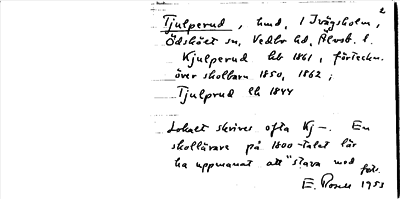 2
Tjulperud, hmd, 1 Ivägsholm,
Ödskölt sn, Vedbo hd, Älvsb. l.
Kjulperud hb 1861, förteckn.
över skolbarn 1850, 1862;
Tjulprud lh 1844
Lokalt skrives ofta Kj-. En
skollärare på 1800-talet lär
ha uppmanat att "stava med
E. 1953